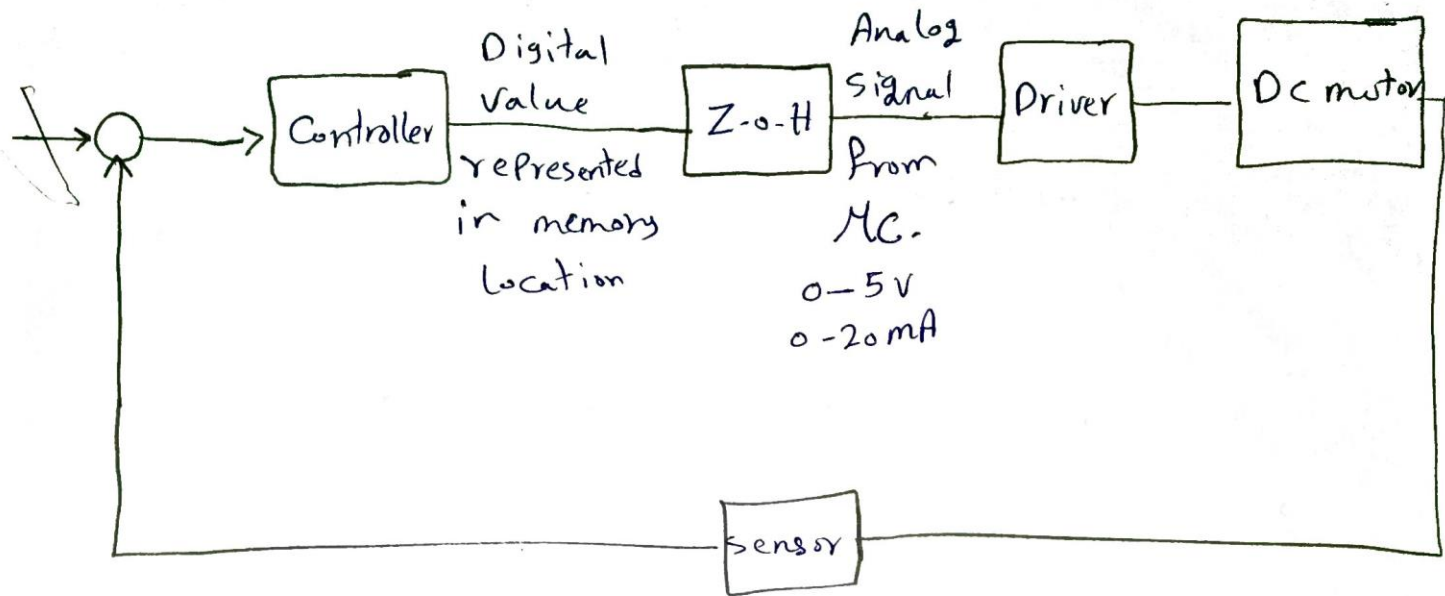 Controller
Digital
value
represented
in memory
location
Z-o-H
Analog
signal
from
MC.
0-5V
0-20mA
Driver
Dc motor
sensor